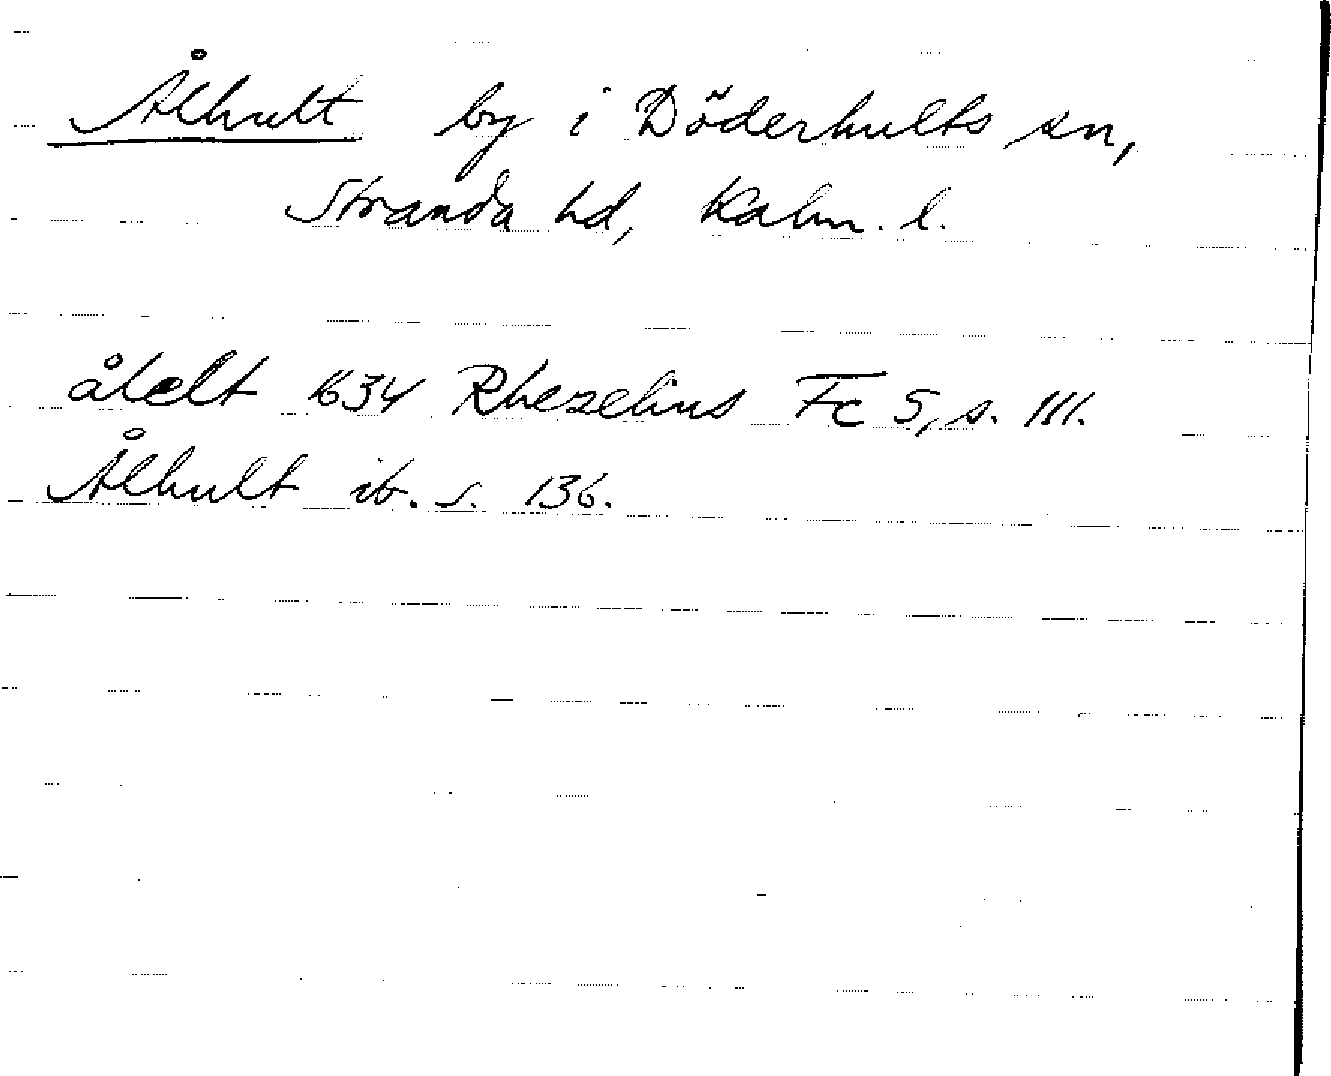 Ålhult by i Döderhults sn,
Stranda hd, Kalm. l.
ålelt 1634 Rhezelius Fc 5, s. 111.
Ålhult ib. s. 136.